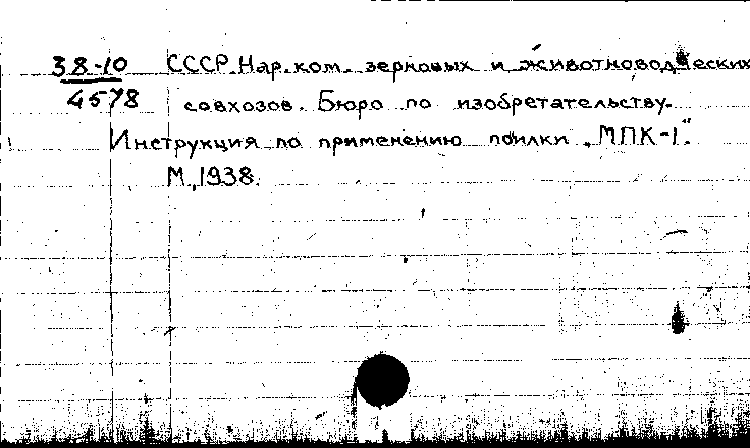 38-10 СССР. Нар. ком. зерновых и животноводческих
4578 совхозов. Бюро по изобретательству.
Инструкция по применению поилки „МПК-1".
М., 1938.